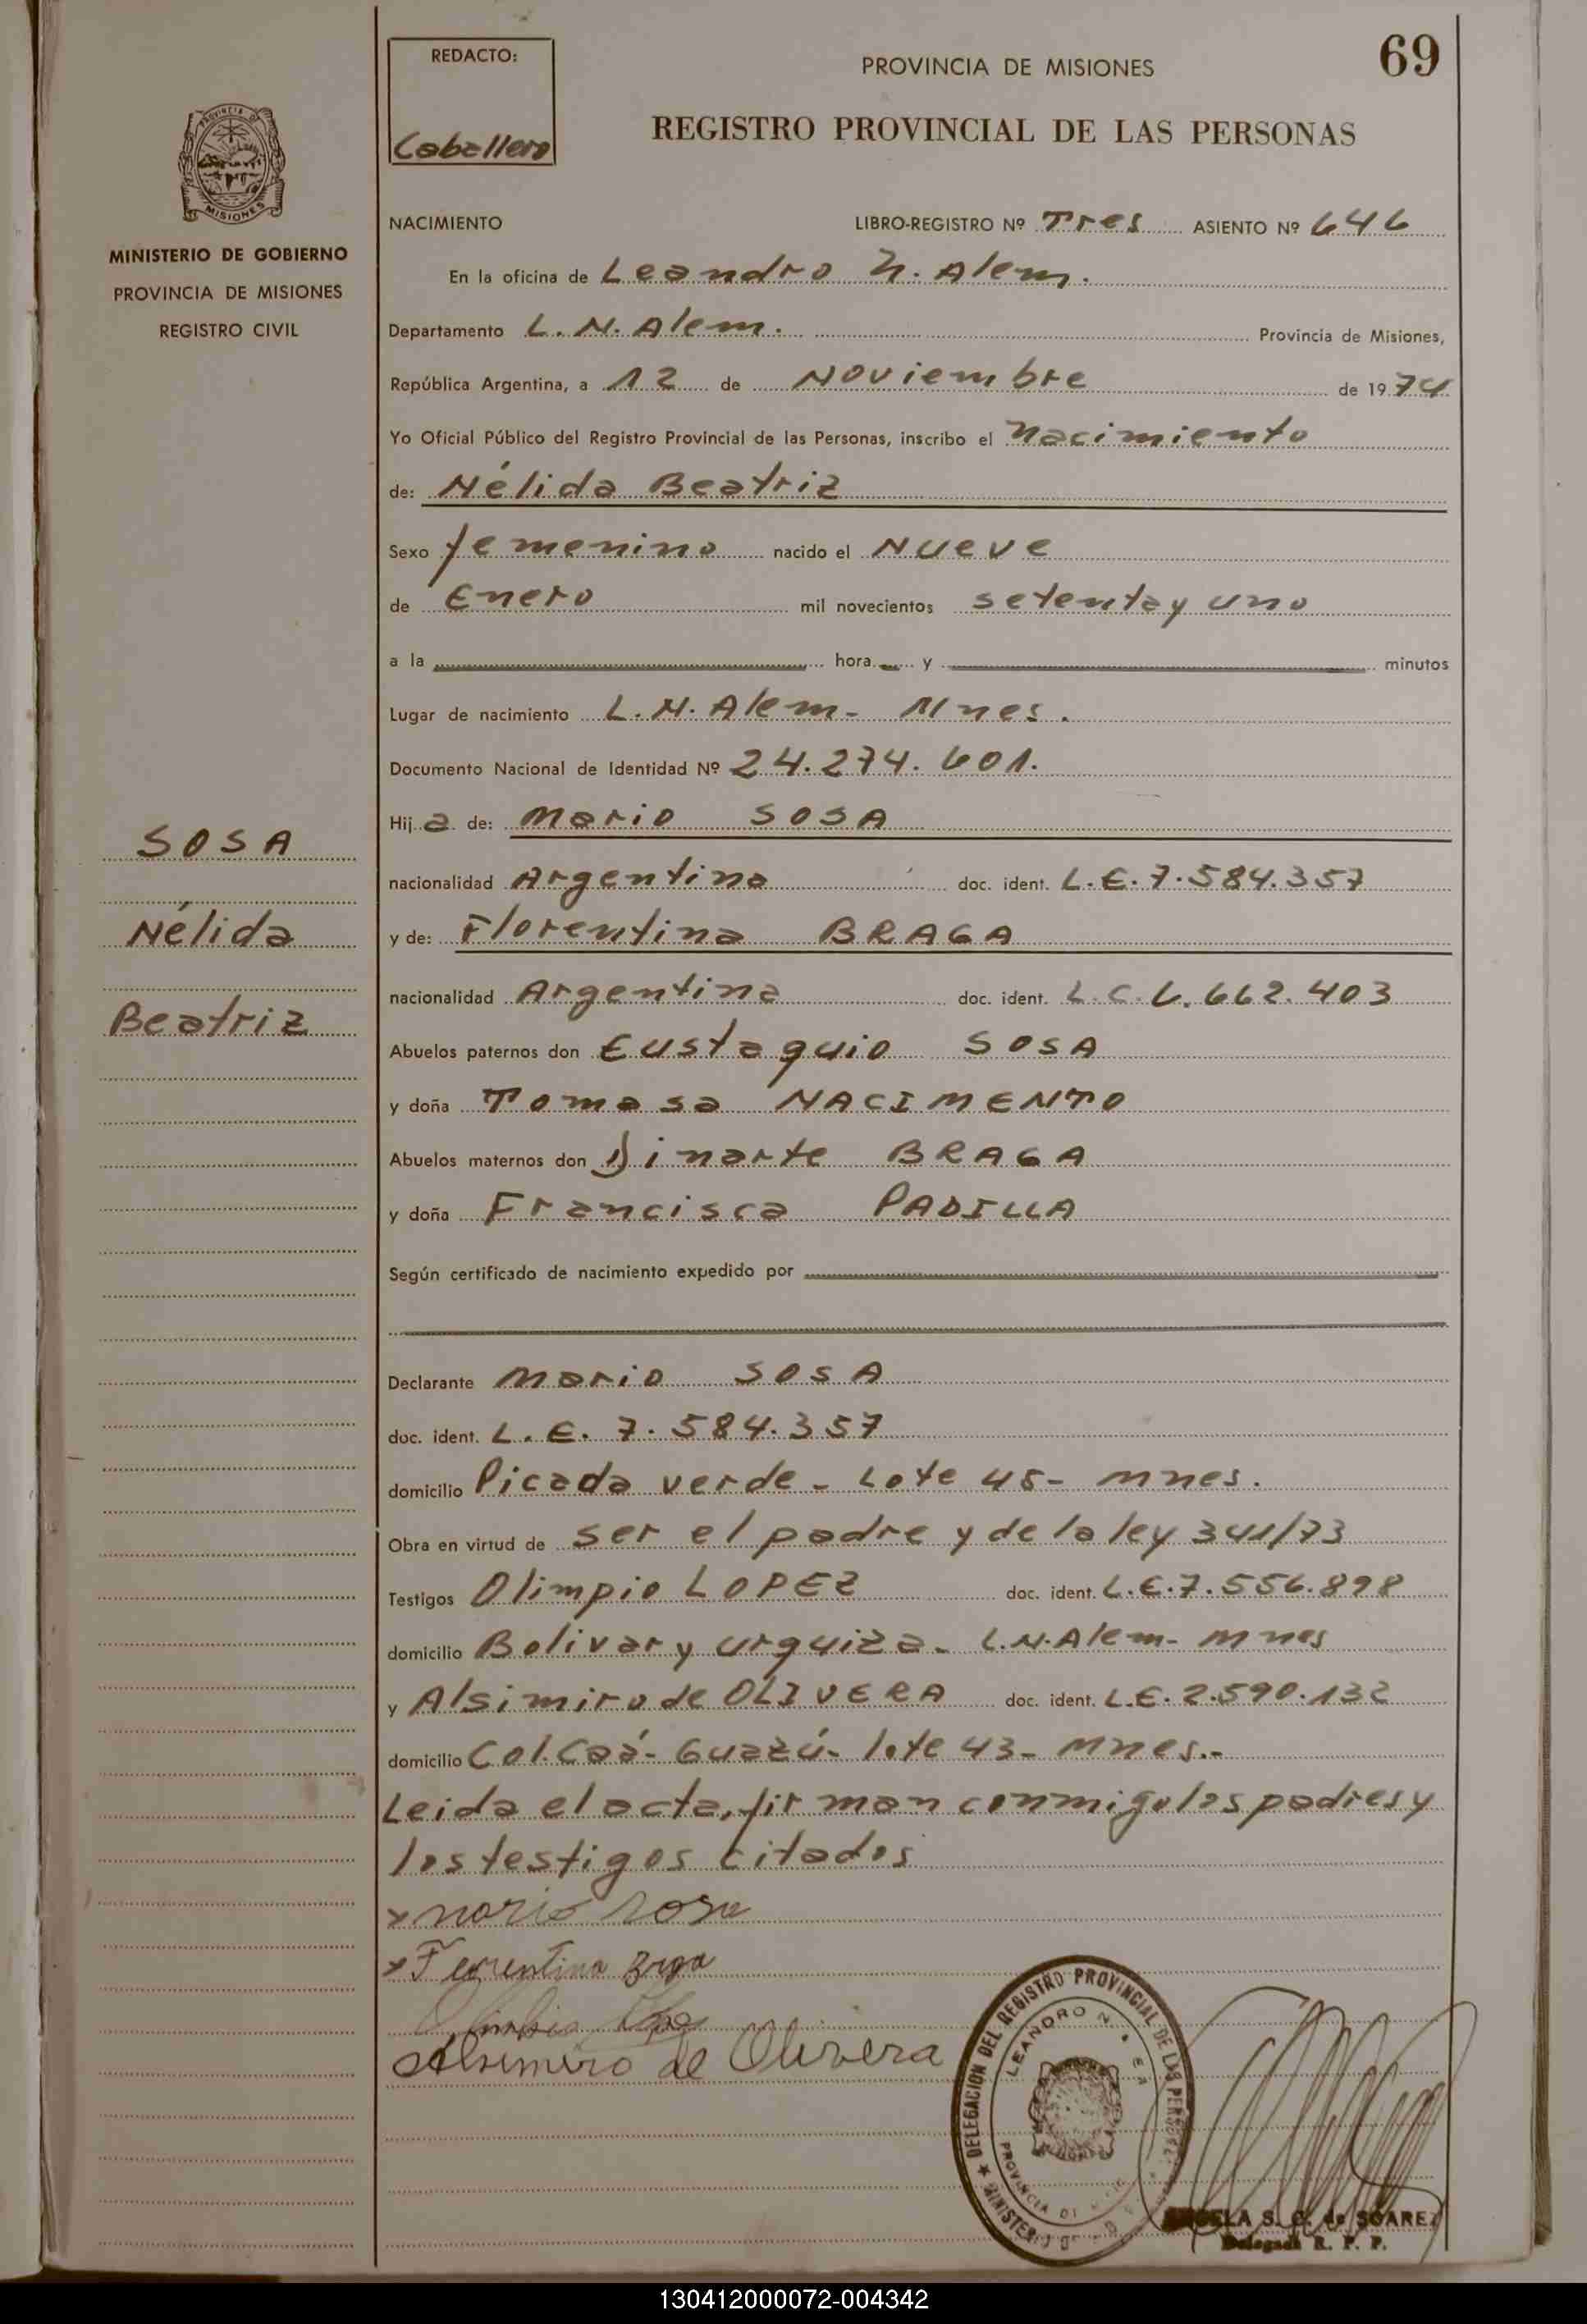 REDACTO:
Caballero
PROVINCIA DE MISIONES
69
REGISTRO PROVINCIAL DE LAS PERSONAS
PROVINCIA DE
MISIONES
MINISTERIO DE GOBIERNO
PROVINCIA DE MISIONES
REGISTRO CIVIL
NACIMIENTO LIBRO-REGISTRO Nº Tres ASIENTO Nº 646
En la oficina de Leandro N. Alem.
Departamento L. N. Alem. Provincia de Misiones,
República Argentina, a 12 de Noviembre de 1974
Yo Oficial Público del Registro Provincial de las Personas, inscribo el Nacimiento
de: Nélida Beatriz
Sexo femenino nacido el Nueve
de Enero mil novecientos setenta y uno
a la hora y minutos
Lugar de nacimiento L. N. Alem - Mnes.
Documento Nacional de Identidad Nº 24.274.601.
Hija de: Mario SOSA
nacionalidad Argentina doc. ident. L.E. 7.584.357
y de: Florentina BRAGA
nacionalidad Argentina doc. ident. L.C. 6.662.403
Abuelos paternos don Eustaquio SOSA
y doña Tomasa NACIMENTO
Abuelos maternos don Dinarte BRAGA
y doña Francisca PADILLA
Según certificado de nacimiento expedido por
SOSA
Nélida
Beatriz
Declarante Mario SOSA
doc. ident. L. E. 7.584.357
domicilio Picada verde - Lote 45 - Mnes.
Obra en virtud de ser el padre y de la ley 341/73
Testigos Olimpio LOPEZ doc. ident. L.E. 7.556.898
domicilio Bolivar y Urquiza - L.N.Alem - Mnes
y Alsimiro de OLIVERA doc. ident. L.E. 2.590.132
domicilio Col. Caá-Guazú - lote 43 - Mnes.-
Leida el acta, firman conmigo los padres y
los testigos citados
x mario sosa
Alsimiro de Olivera
DELEGACION DEL REGISTRO PROVINCIAL DE LAS
LEANDRO N.
PROVINCIA
S. C. de SOAREZ
Delegada R. P. P.
130412000072-004342